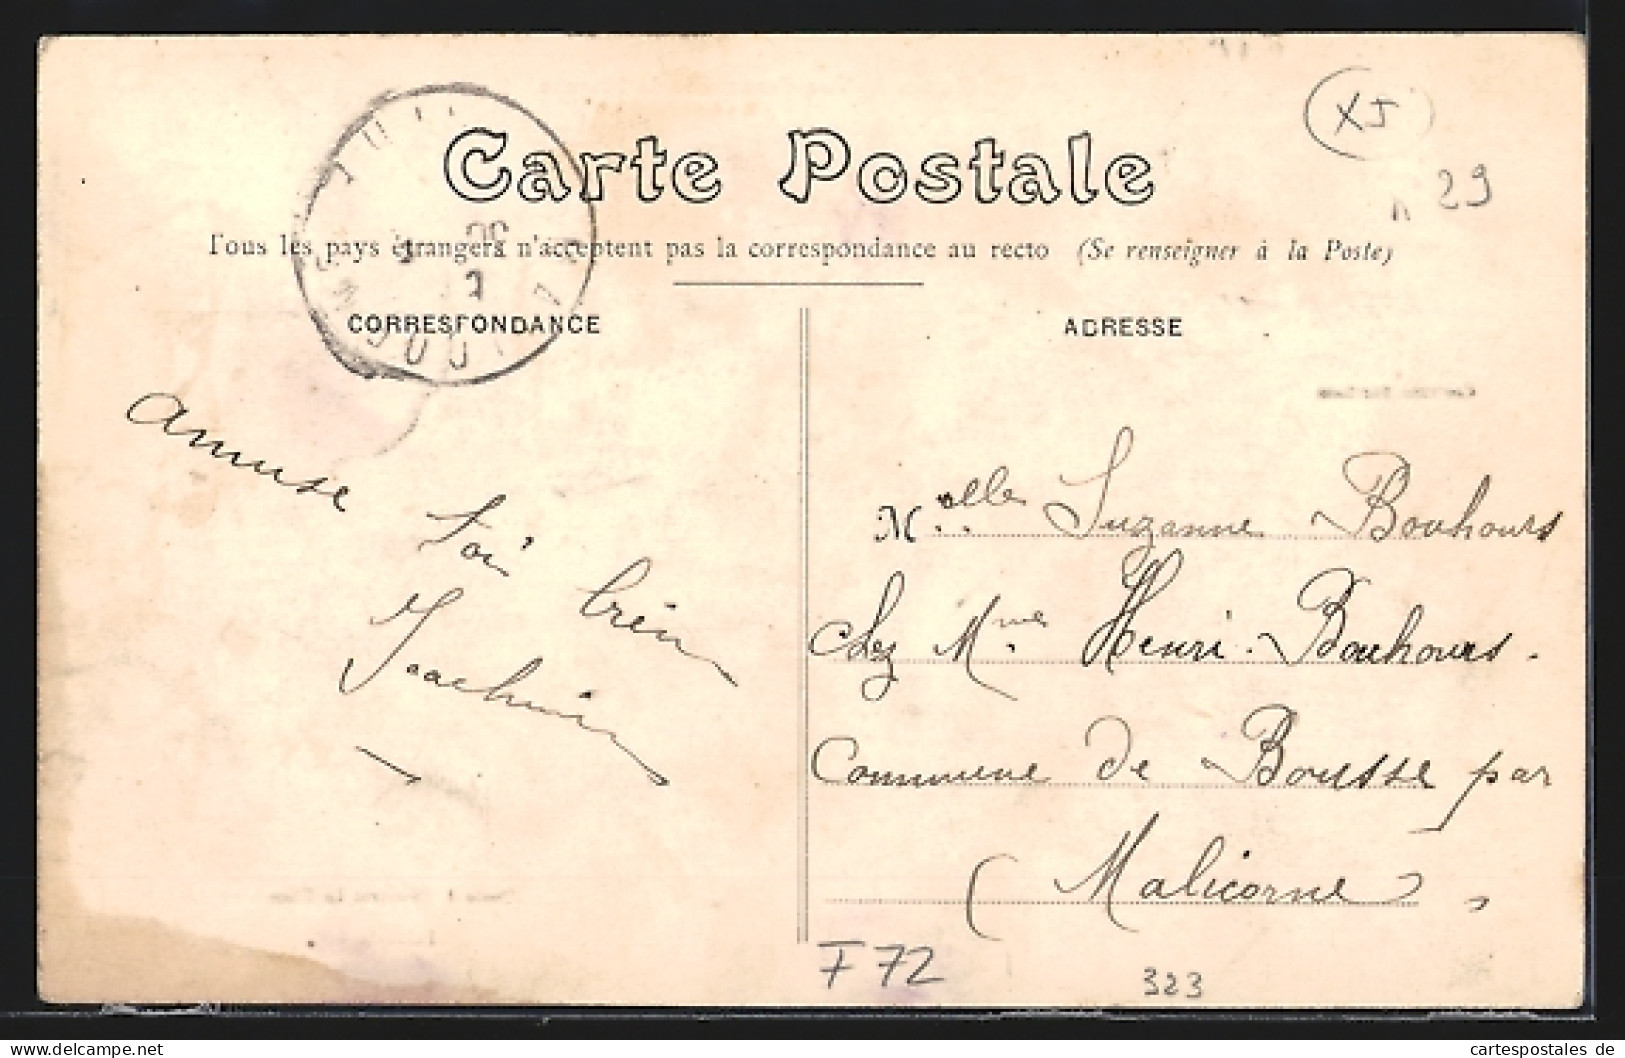 Carte Postale
Tous les pays étrangers n'acceptent pas la correspondance au recto (Se renseigner à la Poste)
CORRESPONDANCE
ADRESSE
XJ
29
amuse
toi bien
Joachim
Melle Suzanne Bouhours
Chez Mme Henri Bouhours.
Commune de Bousse par
(Malicorne)
F72
323
www.delcampe.net
cartespostales de